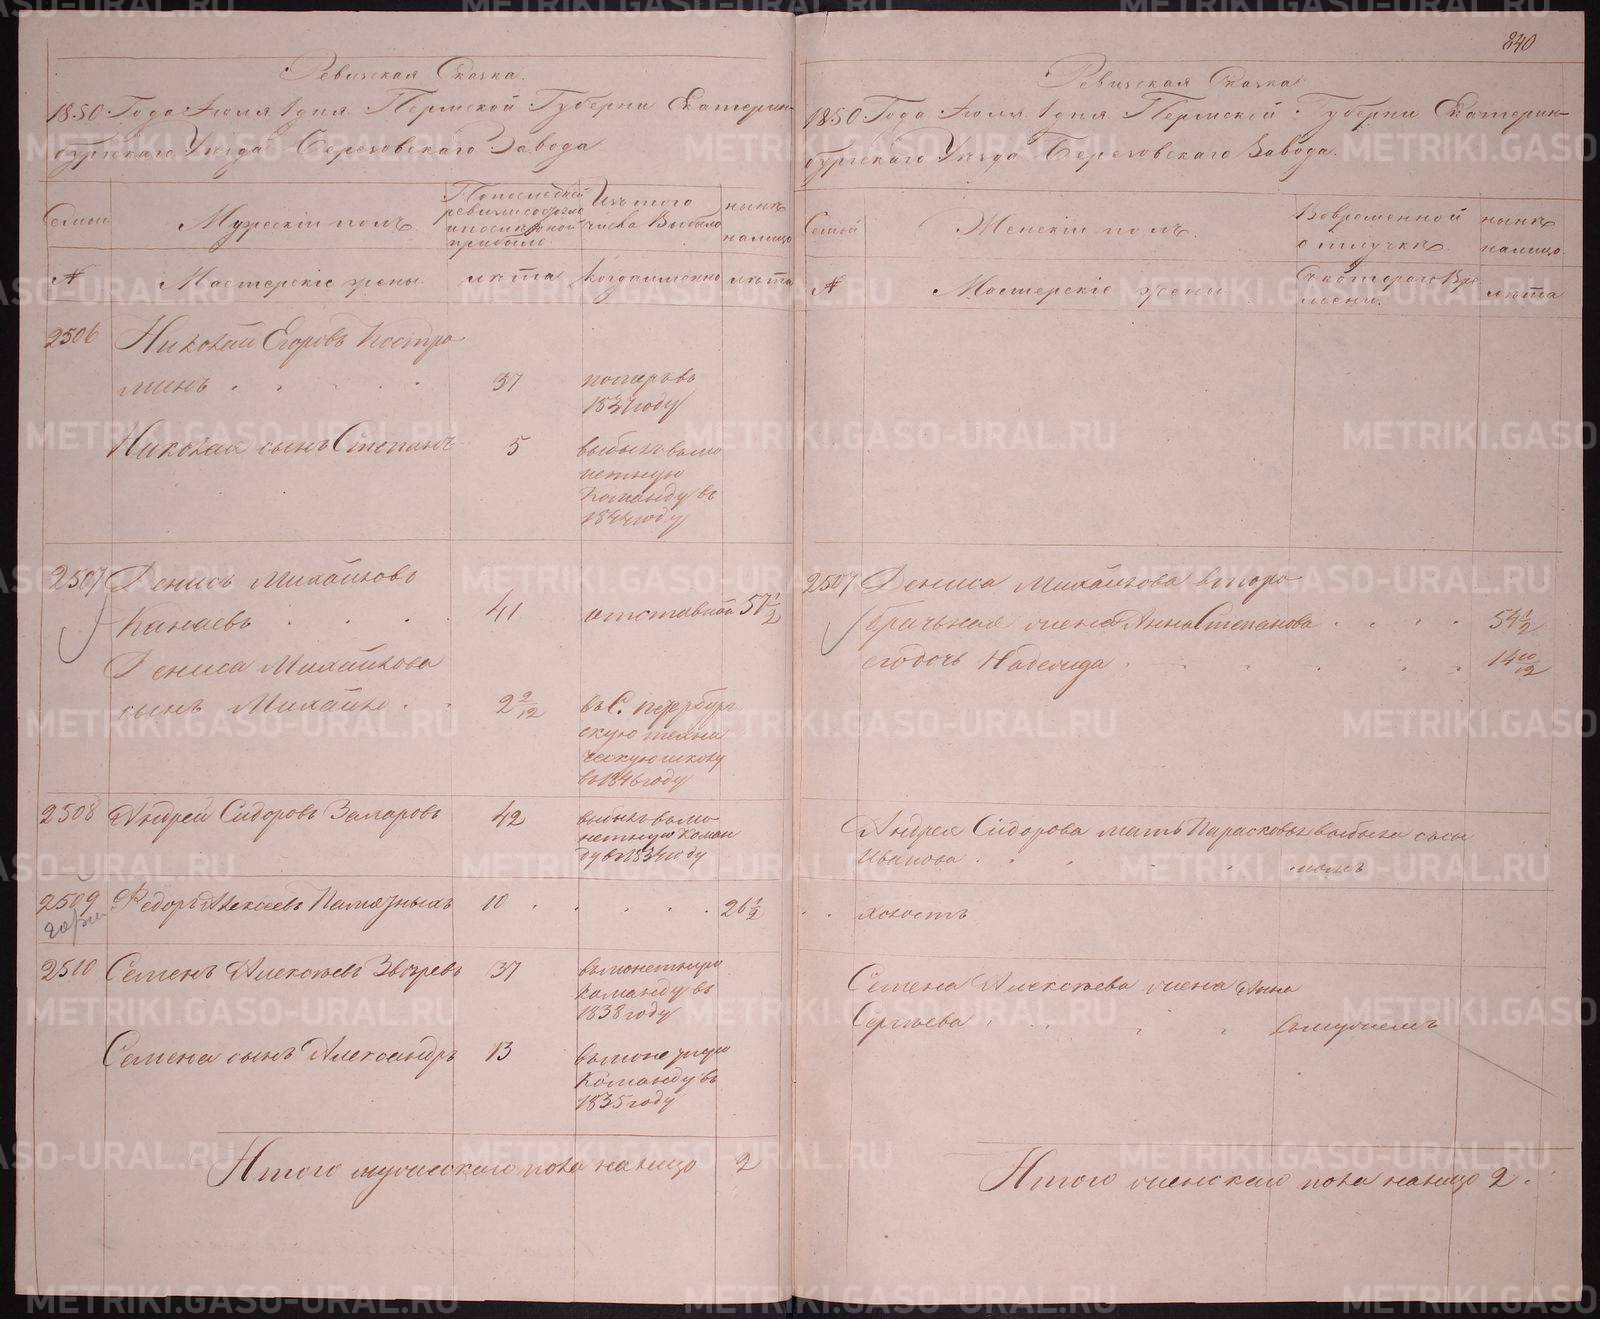 840
Ревизская Сказка.
1850 Года Июля 1 дня Пермской Губерни Екатерин-
бургскаго Уезда Березовскаго Завода
Семьи
Мужескій полъ.
По последней ревизіи состояло и после оной прибыло
Изъ того числа Выбыло
ныне на лицо
№
Мастерскіе жены
лета
Когда именно
лета
2506 Николай Егоровъ Костро
минъ . . . . 37 померъ въ
1837 году
Николая сынъ Степанъ 5 выбылъ въ мо
нетную
Команду въ
1844 году
2507 Денисъ Михайловъ
Канаевъ . . . . 41 отставной 57 1/2
Дениса Михайлова
сынъ Михайло . . 2 2/12 въ С. петербург
скую техни
ческую школу
въ 1846 году
2508 Андрей Сидоровъ Замаровъ 42 выбылъ въ мо
нетную Коман
ду въ 1834 году
2509 Федоръ Алексеевъ Памятныхъ 10 . . . . 26 1/2
2510 Семенъ Алексеевъ Звѣревъ 37 въ монетную
Команду въ
1838 году
Семена сынъ Александръ 13 въ монетную
Команду въ
1835 году
Итого мужескаго пола на лицо 2
Ревизская Сказка
1850 Года Июля 1 дня Пермскій Губерни Екатерин-
бургскаго Уезда Березовскаго Завода.
Семьи
Женскій полъ.
Во временной отлучке
ныне налицо
№
Мастерскіе жены
Съ котораго Вре мени.
лета
2507 Дениса Михайлова второ
брачьная жена Анна Степанова . . . . 54 1/2
его дочь Надежда . . . . . . 14 10/12
Андрея Сидорова мать Парасковья выбыла съ сы
Иванова . . . . номъ
холостъ
Семена Алексеева жена Анна
Сергеева . . . . съ мужемъ
Итого женскаго пола на лицо 2.
METRIKI.GASO-URAL.RU